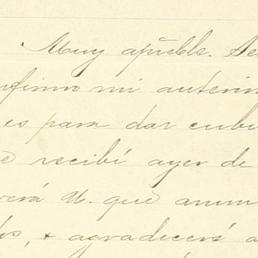 Muy apreble. Se
nfirmo mi anterior
es para dar cubi
recibí ayer de
verá U. que anun
os, + agradeceré a